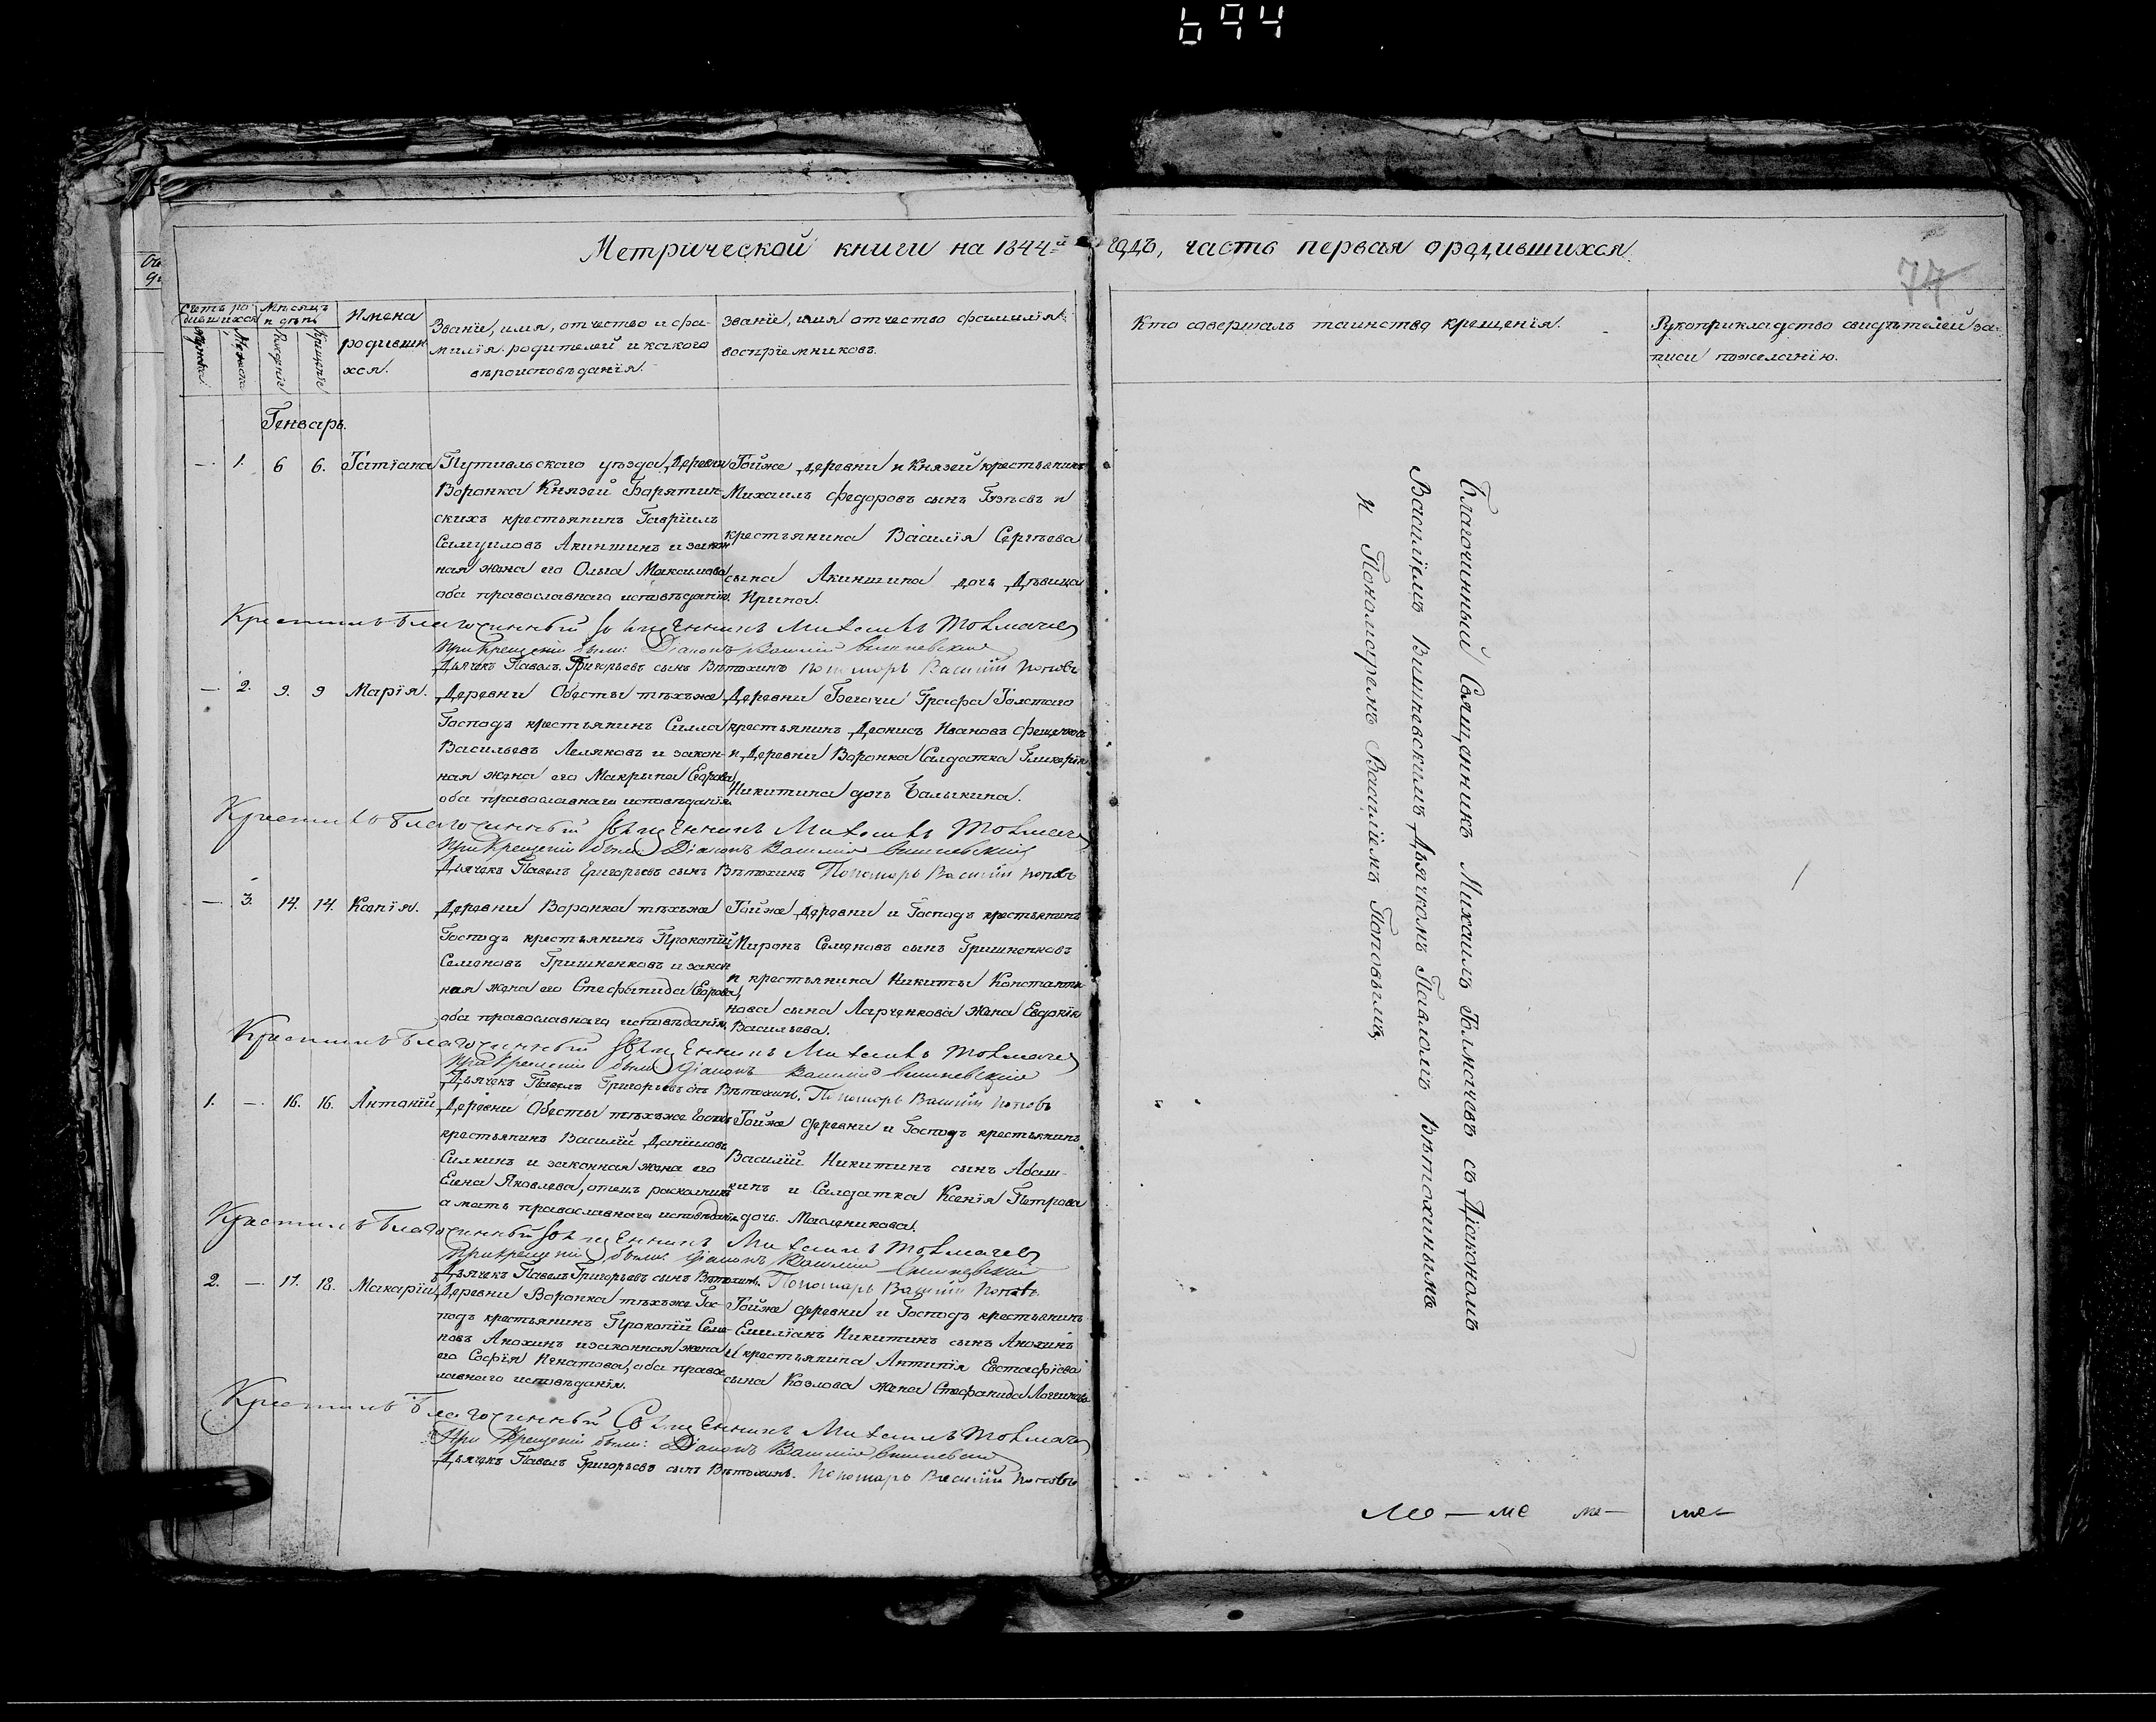 694
Метрической книги на 1844й годъ, часть первая ородившихся.
77
Счетъ родившихся
Мѣсяцъ и день
Имена родивши
хся.
Мужеска.
Женска.
Рожденіе
Крещеніе
Званіе, имя, отчество и фа-
милія родителей и какого
вѣроисповѣданія.
Званіе, имя отчество фамилія
воспріемниковъ.
Кто совершалъ таинство крещенія.
Рукоприкладство свидѣтелей за-
писи пожеланію.
Генварь.
— 1. 6 6. Татіана
Путивльского уѣзда, Деревни
Воронка Князей Барятин-
скихъ крестьянинъ Гавріилъ
Самуиловъ Акиншинъ и закон
ная жена его Ольга Максимова
оба православнаго исповѣданія.
Тойже деревни и Князей крестьянинъ
Михаилъ Федоровъ сынъ и
крестьянина Василія Сергѣева
сына Акиншина дочь Дѣвица
Ирина.
Крестилъ Благочинный Священникъ Михаилъ Толмачев
При Крещеніи были: Діаконъ Василій Вишневскій
Дьячекъ Павелъ Григорьевъ сынъ Вѣтохинъ Пономарь Василій Поповъ
— 2. 9. 9 Марія.
Деревни Обесты тѣхъже
Господъ крестьянинъ Сила
Васильевъ Лемяковъ и закон-
ная жена его Макрина Егорова,
оба православнаго исповѣданія.
Деревни Бегачи Графа Толстого
крестьянинъ Деонисъ Ивановъ
и Деревни Воронка Салдатка Гликерія
Никитина дочь Балыкина.
Крестилъ Благочинный Священникъ Михаилъ Толмачев
При Крещеніи были Діаконъ Василій Вишневскій
Дьячекъ Павелъ Григорьевъ сынъ Вѣтохинъ Пономарь Василій Поповъ
— 3. 14. 14. Ксенія.
Деревни Воронка тѣхъже
Господъ крестьянинъ Прокопій
Семеновъ Гришненковъ и закон
ная жена его Стефанида Егорова,
оба православнаго исповѣданія.
Тойже Деревни и Господъ крестьянинъ
Миронъ Семеновъ сынъ Гришненковъ
и крестьянина Никиты Константи
нова сына Ларченкова жена Евдокія
Васильева.
Крестилъ Благочинный Священникъ Михаилъ Толмачев
При Крещеніи были Діаконъ Василій Вишневскій
Дьячекъ Павелъ Григорьевъ сынъ Вѣтохинъ. Пономарь Василій Поповъ
1. — 16. 16. Антоній
Деревни Обесты тѣхъже Господъ
крестьянинъ Василій Даниловъ
Силкинъ и законная жена его
Елена Яковлева, отецъ раскольникъ
а мать православнаго исповѣданія.
Тойже деревни и Господъ крестьянинъ
Василій Никитинъ сынъ Абаш-
кинъ и Салдатка Ксенія Петрова
дочь Масленикова.
Крестилъ Благочинный Священникъ Михаилъ Толмачев
При крещеніи были: Діаконъ Василій Вишневскій
Дьячекъ Павелъ Григорьевъ сынъ Вѣтохинъ. Пономарь Василій Поповъ
2. — 17. 18. Макарій
Деревни Воронка тѣхъже Гос-
подъ крестьянинъ Прокопій Семе-
новъ Анохинъ и законная жена
его Софія Игнатова, оба правос
лавнаго исповѣданія.
Тойже деревни и Господъ крестьянинъ
Емиліанъ Никитинъ сынъ Анохинъ
и крестьянина Антипія Евстафіева
сына Козлова жена Стефанида Логинова
Крестилъ Благочинный Священникъ Михаилъ Толмачев
При Крещеніи были: Діаконъ Василій Вишневскій
Дьячекъ Павелъ Григорьевъ сынъ Вѣтохинъ. Пономарь Василій Поповъ
Благочинный Священникъ Михаилъ Толмачевъ съ Діакономъ
Василіемъ Вишневскимъ, Дьячкомъ Павломъ Вѣтохинымъ
и Пономаремъ Василіемъ Поповымъ.